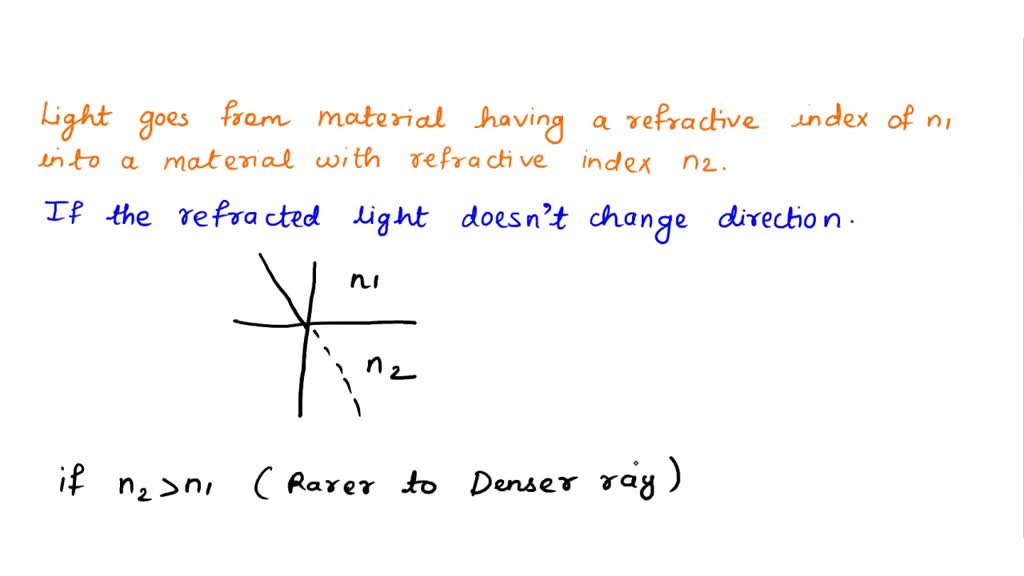 Light goes from material having a refractive index of n1
into a material with refractive index n2.
If the refracted light doesn't change direction.
n1
n2
if n2>n1 (Rarer to Denser ray)